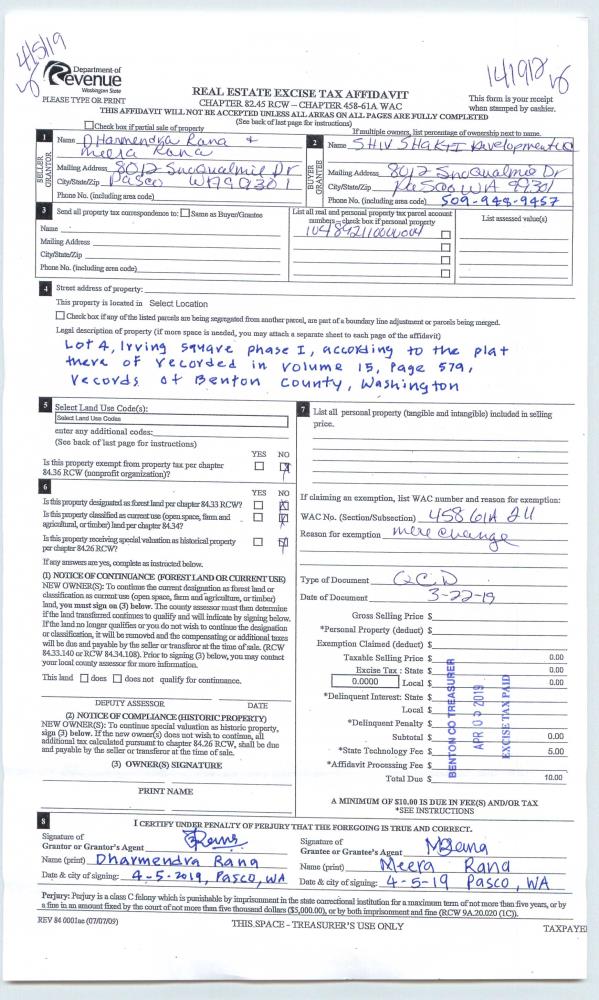 4/5/19
141912
Department of
Revenue
Washington State
PLEASE TYPE OR PRINT
REAL ESTATE EXCISE TAX AFFIDAVIT
CHAPTER 82.45 RCW – CHAPTER 458-61A WAC
This form is your receipt
when stamped by cashier.
THIS AFFIDAVIT WILL NOT BE ACCEPTED UNLESS ALL AREAS ON ALL PAGES ARE FULLY COMPLETED
(See back of last page for instructions)
Check box if partial sale of property
If multiple owners, list percentage of ownership next to name.
1 Name Dharmendra Rana &
Meera Rana
SELLER
GRANTOR
Mailing Address 8012 Snoqualmie Dr
City/State/Zip Pasco WA 99301
Phone No. (including area code)
2 Name SHIV SHAKTI Development LLC
BUYER
GRANTEE
Mailing Address 8012 Snoqualmie Dr
City/State/Zip Pasco WA 99301
Phone No. (including area code) 509-948-9457
3 Send all property tax correspondence to: Same as Buyer/Grantee
Name
Mailing Address
City/State/Zip
Phone No. (including area code)
List all real and personal property tax parcel account
numbers – check box if personal property
104842110000004
List assessed value(s)
4 Street address of property:
This property is located in Select Location
Check box if any of the listed parcels are being segregated from another parcel, are part of a boundary line adjustment or parcels being merged.
Legal description of property (if more space is needed, you may attach a separate sheet to each page of the affidavit)
Lot 4, Irving square phase I, according to the plat
there of recorded in volume 15, Page 579,
records of Benton County, Washington
5 Select Land Use Code(s):
Select Land Use Codes
enter any additional codes:
(See back of last page for instructions)
YES NO
Is this property exempt from property tax per chapter
84.36 RCW (nonprofit organization)?
6
YES NO
Is this property designated as forest land per chapter 84.33 RCW?
Is this property classified as current use (open space, farm and
agricultural, or timber) land per chapter 84.34?
Is this property receiving special valuation as historical property
per chapter 84.26 RCW?
If any answers are yes, complete as instructed below.
(1) NOTICE OF CONTINUANCE (FOREST LAND OR CURRENT USE)
NEW OWNER(S): To continue the current designation as forest land or
classification as current use (open space, farm and agriculture, or timber)
land, you must sign on (3) below. The county assessor must then determine
if the land transferred continues to qualify and will indicate by signing below.
If the land no longer qualifies or you do not wish to continue the designation
or classification, it will be removed and the compensating or additional taxes
will be due and payable by the seller or transferor at the time of sale. (RCW
84.33.140 or RCW 84.34.108). Prior to signing (3) below, you may contact
your local county assessor for more information.
This land does does not qualify for continuance.
DEPUTY ASSESSOR DATE
(2) NOTICE OF COMPLIANCE (HISTORIC PROPERTY)
NEW OWNER(S): To continue special valuation as historic property,
sign (3) below. If the new owner(s) does not wish to continue, all
additional tax calculated pursuant to chapter 84.26 RCW, shall be due
and payable by the seller or transferor at the time of sale.
(3) OWNER(S) SIGNATURE
PRINT NAME
7 List all personal property (tangible and intangible) included in selling
price.
If claiming an exemption, list WAC number and reason for exemption:
WAC No. (Section/Subsection) 458 61A 211
Reason for exemption mere change
Type of Document QCD
Date of Document 3-22-19
Gross Selling Price $
*Personal Property (deduct) $
Exemption Claimed (deduct) $
Taxable Selling Price $ 0.00
Excise Tax : State $ 0.00
0.0000 Local $ 0.00
*Delinquent Interest: State $
Local $
*Delinquent Penalty $
Subtotal $ 0.00
*State Technology Fee $ 5.00
*Affidavit Processing Fee $
Total Due $ 10.00
BENTON CO TREASURER
APR 05 2019
EXCISE TAX PAID
A MINIMUM OF $10.00 IS DUE IN FEE(S) AND/OR TAX
*SEE INSTRUCTIONS
8 I CERTIFY UNDER PENALTY OF PERJURY THAT THE FOREGOING IS TRUE AND CORRECT.
Signature of
Grantor or Grantor's Agent
Name (print) Dharmendra Rana
Date & city of signing: 4-5-2019, PASCO, WA
Signature of
Grantee or Grantee's Agent
Name (print) Meera Rana
Date & city of signing: 4-5-19 Pasco, WA
Perjury: Perjury is a class C felony which is punishable by imprisonment in the state correctional institution for a maximum term of not more than five years, or by
a fine in an amount fixed by the court of not more than five thousand dollars ($5,000.00), or by both imprisonment and fine (RCW 9A.20.020 (1C)).
REV 84 0001ae (07/07/09)
THIS SPACE - TREASURER'S USE ONLY
TAXPAYE